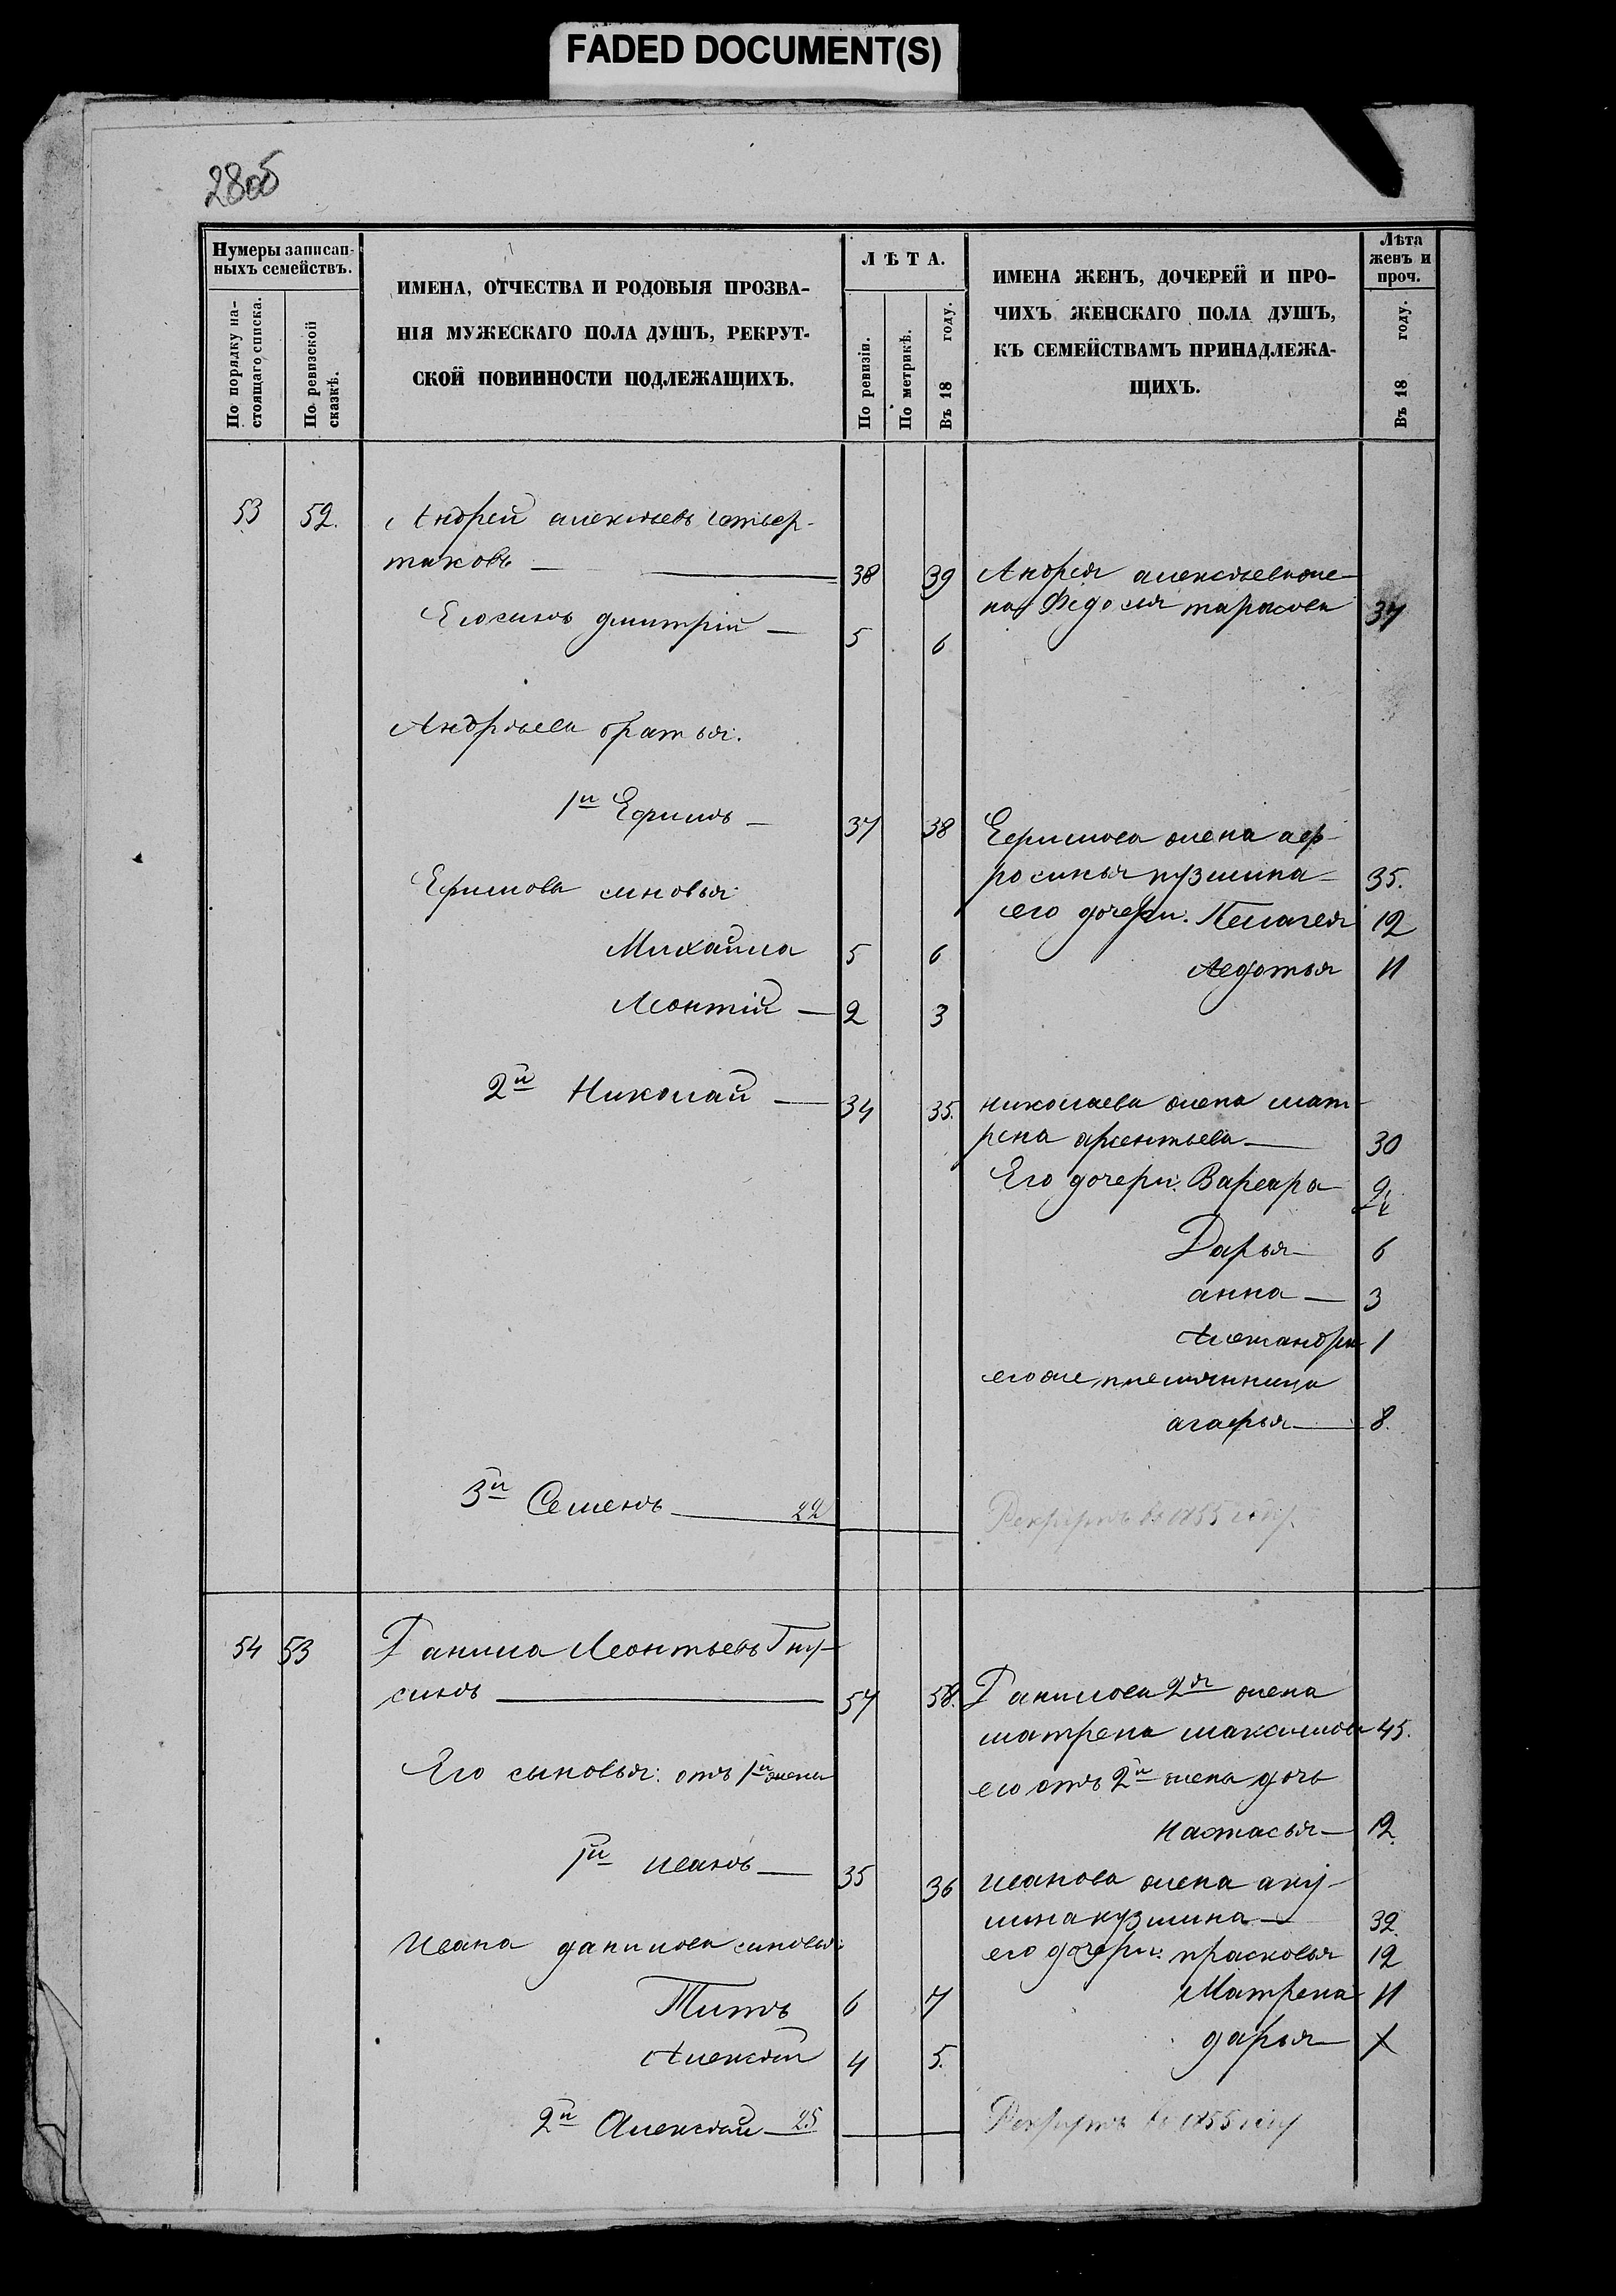 FADED DOCUMENT(S)
280б
Нумеры записан-
ныхъ семействъ.
По порядку на-
стоящаго списка.
По ревизской
сказкѣ.
ИМЕНА, ОТЧЕСТВА И РОДОВЫЯ ПРОЗВА-
НІЯ МУЖЕСКАГО ПОЛА ДУШЪ, РЕКРУТ-
СКОЙ ПОВИННОСТИ ПОДЛЕЖАЩИХЪ.
ЛѢТА.
По ревизіи.
По метрикѣ.
Въ 18 году.
ИМЕНА ЖЕНЪ, ДОЧЕРЕЙ И ПРО-
ЧИХЪ ЖЕНСКАГО ПОЛА ДУШЪ,
КЪ СЕМЕЙСТВАМЪ ПРИНАДЛЕЖА-
ЩИХЪ.
Лѣта
женъ и
проч.
Въ 18 году.
53 52. Андрей алексѣевъ четвер-
таковъ — 38 39 Андрея алексѣева же-
на Федосья тарасова 37
Его сынъ дмитрій — 5 6
Андрѣева братья:
1й Ефимъ — 37 38 Ефимова жена аф-
росинья кузмина 35.
Ефимова сыновья:
его дочери: Пелагея 12
Михаила 5 6
Авдотья 11
Леонтій — 2 3
2й Николай — 34 35. николаева жена мат-
рена арсентьева — 30
Его дочери: Варвара 9
Дарья 6
анна — 3
Александра 1
его же племянница
агафья — 8.
3й Семенъ — 22 Рекрутъ въ 1855 году.
54 53 Данила Леонтьевъ Гну-
синъ — 57 58. Данилова 2я жена
матрена максимова 45.
Его сыновья: отъ 1й жены
его отъ 2й жены дочь
настасья — 12.
1й иванъ — 35 36 иванова жена аку-
лина кузмина — 32.
Ивана данилова сыновья:
его дочери: прасковья 12
Титъ 6 7 Матрена 11
Алексѣй 4 5. дарья
2й Алексѣй — 25 Рекрутъ въ 1855 году